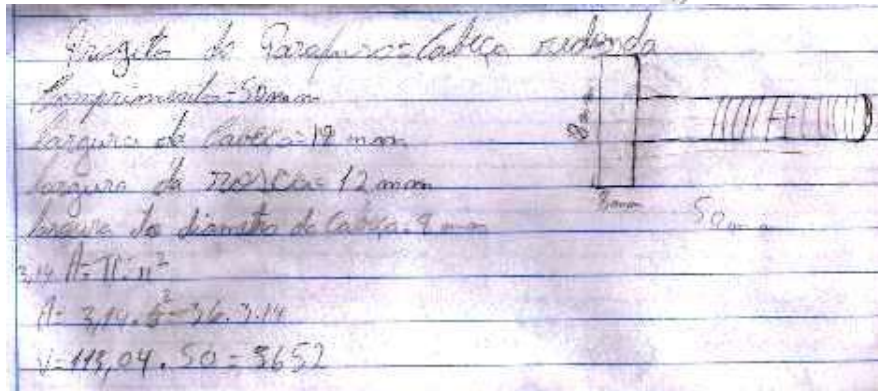 Progeto do Parafuso=Cabeça redonda
Comprimento=50mm
largura da Cabeça=18 mm
largura da rosca=12 mm
largura do diametro da Cabeça
8mm
50mm
3,14 A=π.r²
A=3,14.6²=36.3.14
V=113,04.50=5652